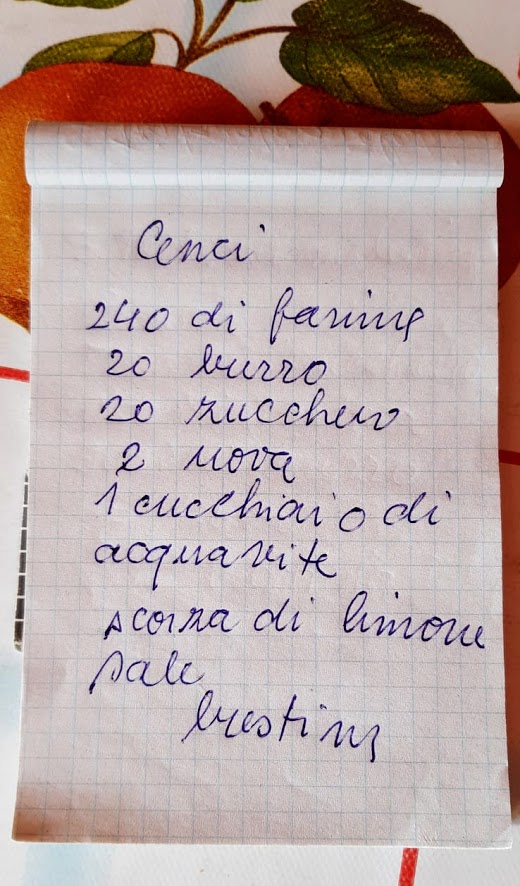 Cenci
240 di farina
20 burro
20 zucchero
2 uova
1 cucchiaio di
acquavite
scorza di limone
sale